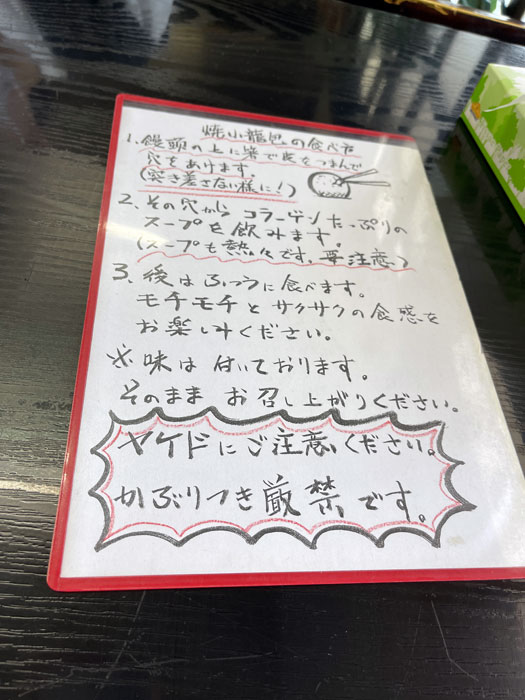 焼小龍包の食べ方
1. 饅頭の上に箸で皮をつまんで
穴をあけます。
(突き差さない様に!)
2. その穴から コラーゲンたっぷりの
スープを飲みます。
(スープも熱々です。要注意)
3. 後はふつうに食べます。
モチモチとサクサクの食感を
お楽しみください。
※味は付いております。
そのままお召し上がりください。
ヤケドにご注意ください。
かぶりつき厳禁です。